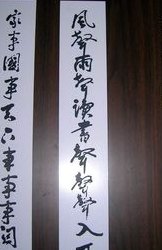 風聲雨聲讀書聲聲聲入
家事國事天下事事事関